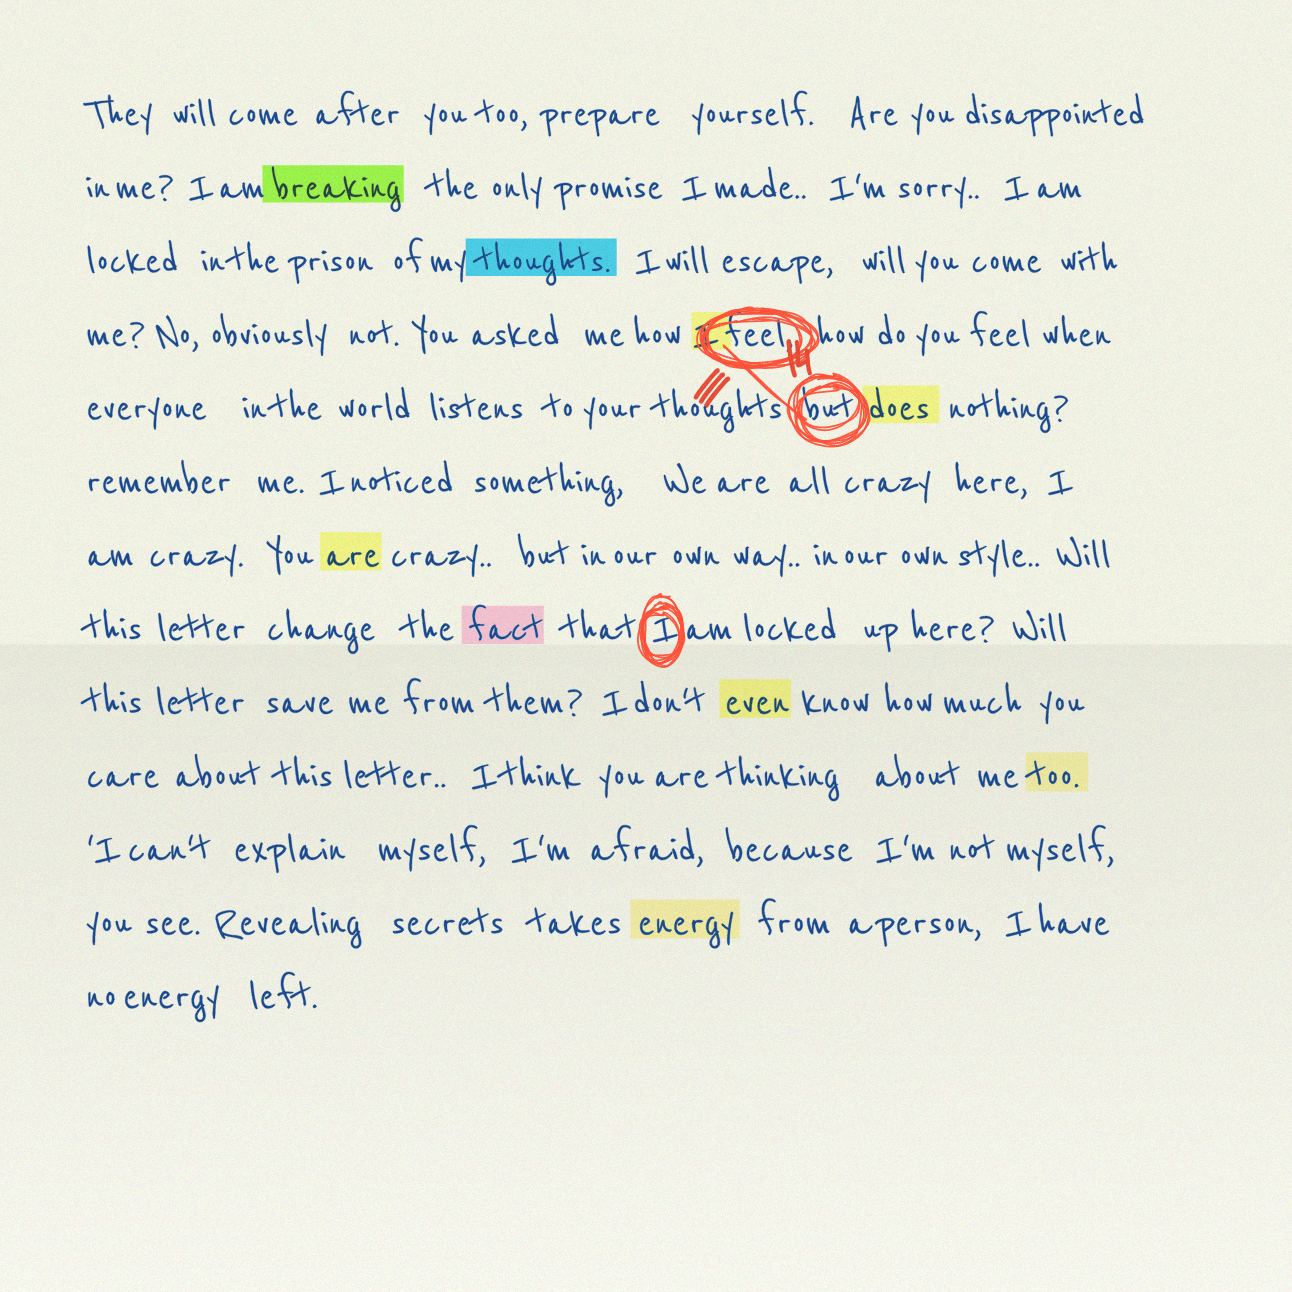 They will come after you too, prepare yourself. Are you disappointed
in me? I am breaking the only promise I made.. I'm sorry.. I am
locked in the prison of my thoughts. I will escape, will you come with
me? No, obviously not. You asked me how I feel, how do you feel when
everyone in the world listens to your thoughts but does nothing?
remember me. I noticed something, We are all crazy here, I
am crazy. You are crazy.. but in our own way.. in our own style.. Will
this letter change the fact that I am locked up here? Will
this letter save me from them? I don't even know how much you
care about this letter.. I think you are thinking about me too.
'I can't explain myself, I'm afraid, because I'm not myself,
you see. Revealing secrets takes energy from a person, I have
no energy left.